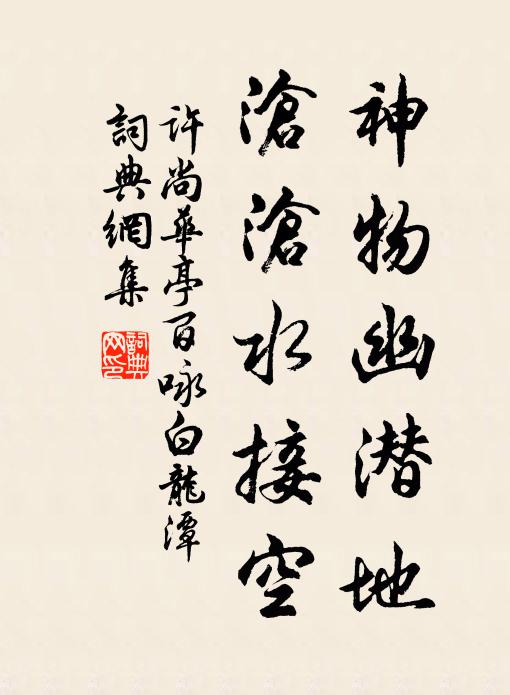 神物幽潜地
滄滄水接空
許尚華亭百咏白龍潭
詞典網集
詞典網印